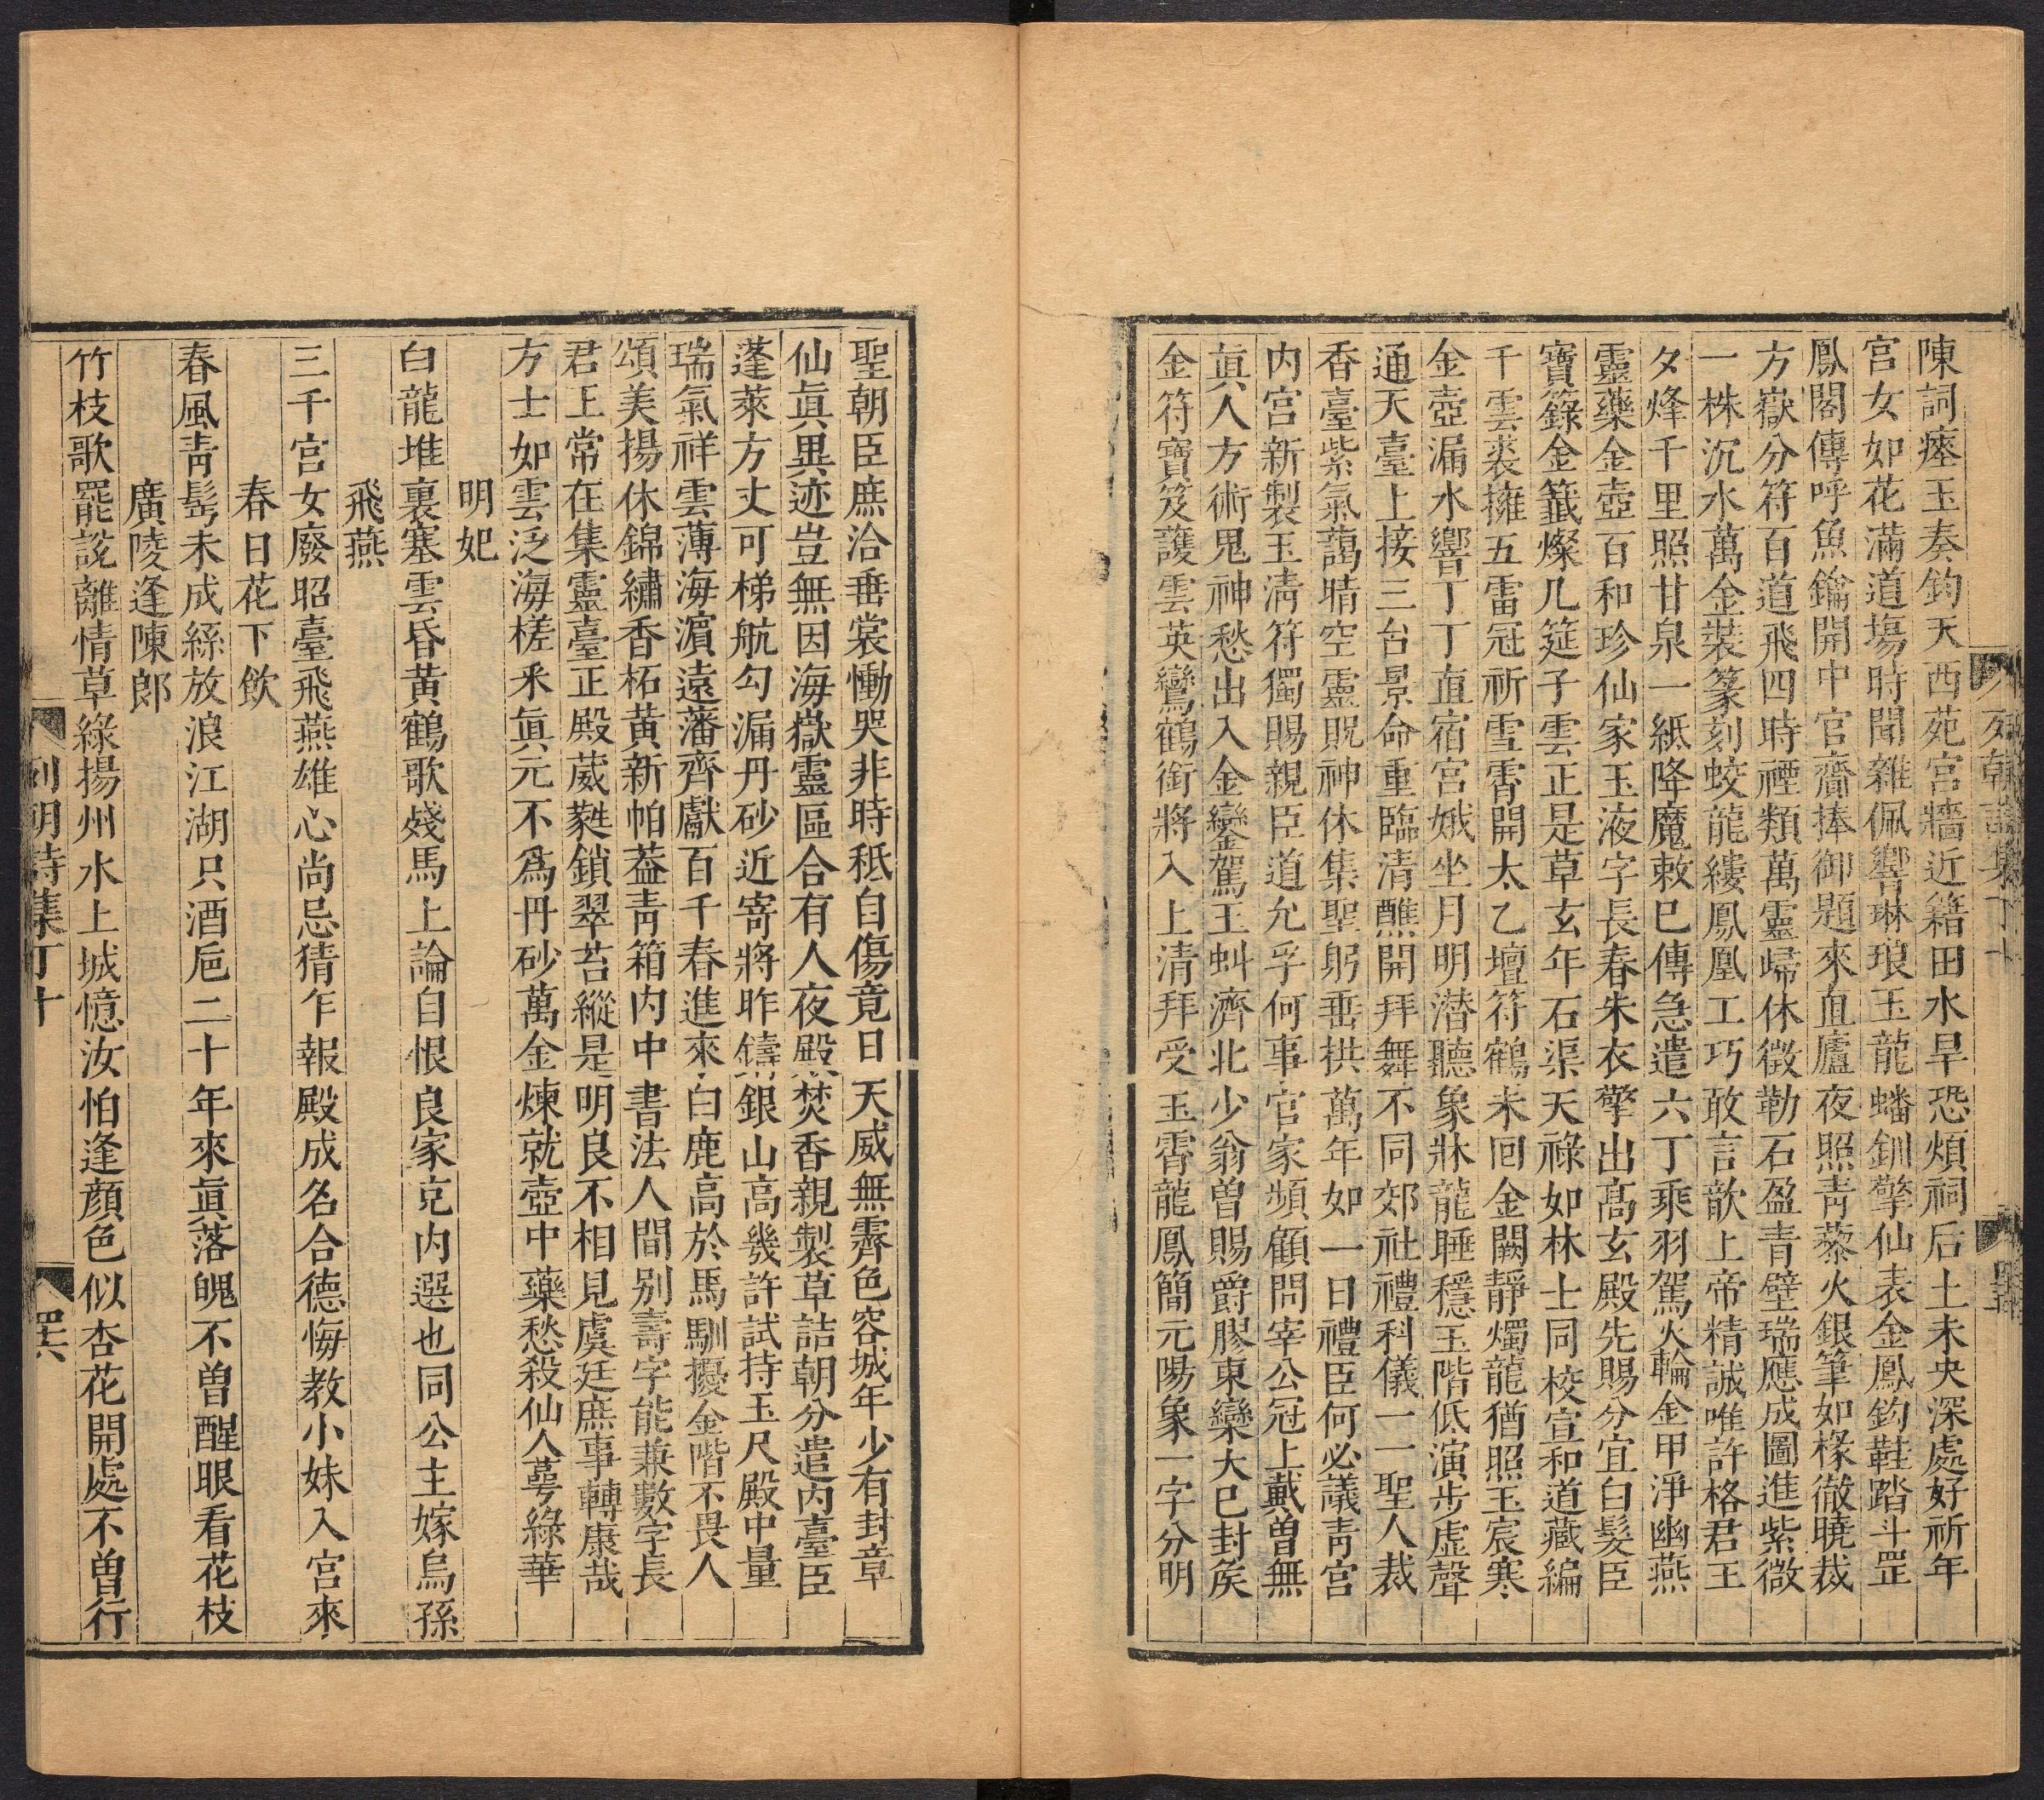 陳詞瘞玉奏鈞天西苑宮牆近籍田水旱恐煩祠后土未央深處好祈年
宮女如花滿道塲時聞雜佩響琳琅玉龍蟠釧擎仙表金鳳鈎鞋踏斗罡
鳳閣傳呼魚鑰開中官齎捧御題來直廬夜照靑藜火銀筆如椽徹曉裁
方嶽分符百道飛四時禋類萬靈歸休徵勒石盈青壁瑞應成圖進紫微
一株沉水萬金裝篆刻蛟龍縷鳳凰工巧敢言歆上帝精誠唯許格君王
夕烽千里照甘泉一紙降魔敕已傳急遣六丁乘羽駕火輪金甲淨幽燕
靈藥金壺百和珍仙家玉液字長春朱衣擎出髙玄殿先賜分宜白髮臣
寶籙金籤燦几筵子雲正是草玄年石渠天祿如林士同校宣和道藏編
千雲裘擁五雷冠祈雪霄開太乙壇符鶴未回金闕靜燭龍猶照玉宸寒
金壺漏水響丁丁直宿宮娥坐月明潜聽象牀龍睡穩玉階低演步虛聲
通天臺上接三台景命重臨清醮開拜舞不同郊社禮科儀一一聖人裁
香臺紫氣藹晴空靈貺神休集聖躬垂拱萬年如一日禮臣何必議靑宮
内宮新製玉淸符獨賜親臣道允孚何事官家頻顧問宰公冠上戴曽無
眞人方術鬼神愁出入金鑾駕玉虯濟北少翁曽賜爵膠東欒大巳封矦
金符寶笈護雲英鸞鶴銜將入上清拜受玉霄龍鳳簡元陽象一字分明
聖朝臣庶洽垂裳慟哭非時秪自傷竟日天威無霽色容城年少有封章
仙眞異迹豈無因海嶽靈區合有人夜殿焚香親製草詰朝分遣内臺臣
蓬萊方丈可梯航勾漏丹砂近寄將昨鑄銀山高幾許試持玉尺殿中量
瑞氣祥雲薄海濵遠藩齊獻百千春進來白鹿高於馬馴擾金階不畏人
頌美揚休錦繡香柘黄新帕葢靑箱内中書法人間别壽字能兼數字長
君王常在集靈臺正殿葳蕤鎖翠苔縱是明良不相見虞廷庶事轉康哉
方士如雲泛海槎釆眞元不爲丹砂萬金煉就壺中藥愁殺仙人萼綠華
明妃
白龍堆裏塞雲昏黄鶴歌殘馬上論自恨良家克内選也同公主嫁烏孫
飛燕
三千宮女廢昭臺飛燕雄心尚忌猜乍報殿成名合德悔教小妹入宮來
春日花下飲
春風靑髩未成絲放浪江湖只酒巵二十年來眞落魄不曽醒眼看花枝
廣陵逢陳郎
竹枝歌罷說離情草綠揚州水上城憶汝怕逢顔色似杏花開處不曽行
列朝詩集丁十